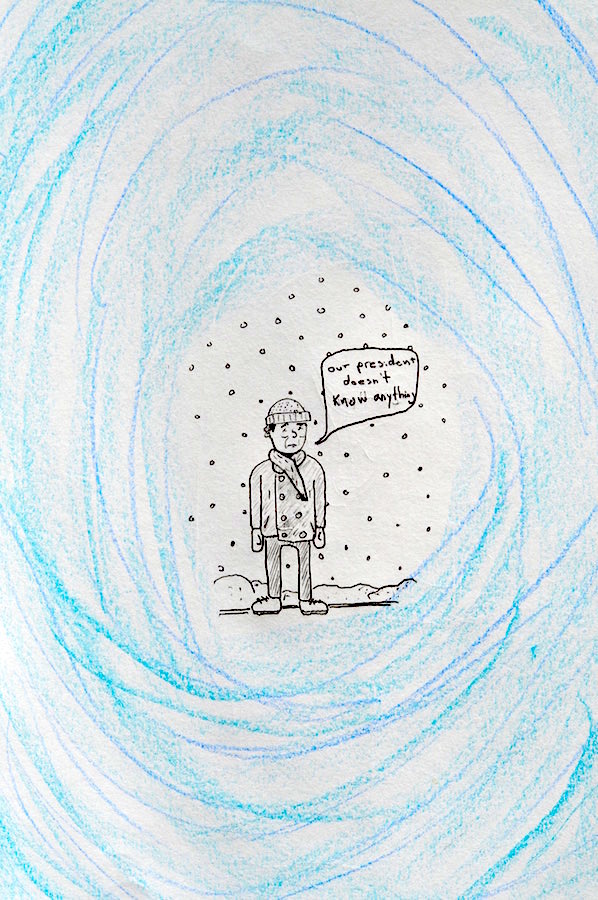 our president
doesn't
know anything